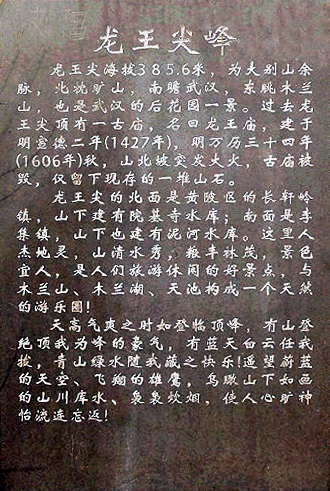 龙王尖峰
龙王尖海拔385.6米，为大别山余
脉，北沈矿山，南瞻武汉，东眺木兰
山，也是武汉的后花园一景。过去龙
王尖顶有一古庙，名曰龙王庙，建于
明宣德二年(1427年)，明万历三十四年
(1606年)秋，山北坡突发大火，古庙被
毁，仅留下现存的一堆山石。
龙王尖的北面是黄陂区的长轩岭
镇，山下建有院基寺水库；南面是李
集镇，山下也建有泥河水库。这里人
杰地灵，山清水秀，粮丰林茂，景色
宜人，是人们旅游休闲的好景点，与
木兰山、木兰湖、天池构成一个天然
的游乐圈!
天高气爽之时如登临顶峰，有山登
绝顶我为峰的豪气，有蓝天白云任我
拔，青山绿水随我藏之快乐!遥望蔚蓝
的天空、飞翔的雄鹰，鸟瞰山下如画
的山川库水、袅袅炊烟，使人心旷神
怡流连忘返!